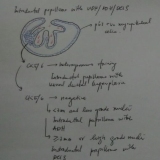 Intraductal papilloma with UDH/ADH/DCIS
p63 +ve myoepithelial cells
CK5/6 → heterogenous staining
Intraductal papilloma with
usual ductal hyperplasia
CK5/6 → negative
< 3mm and low grade nuclei
Intraductal papilloma with
ADH
≥ 3mm or high grade nuclei
Intraductal papilloma with
DCIS